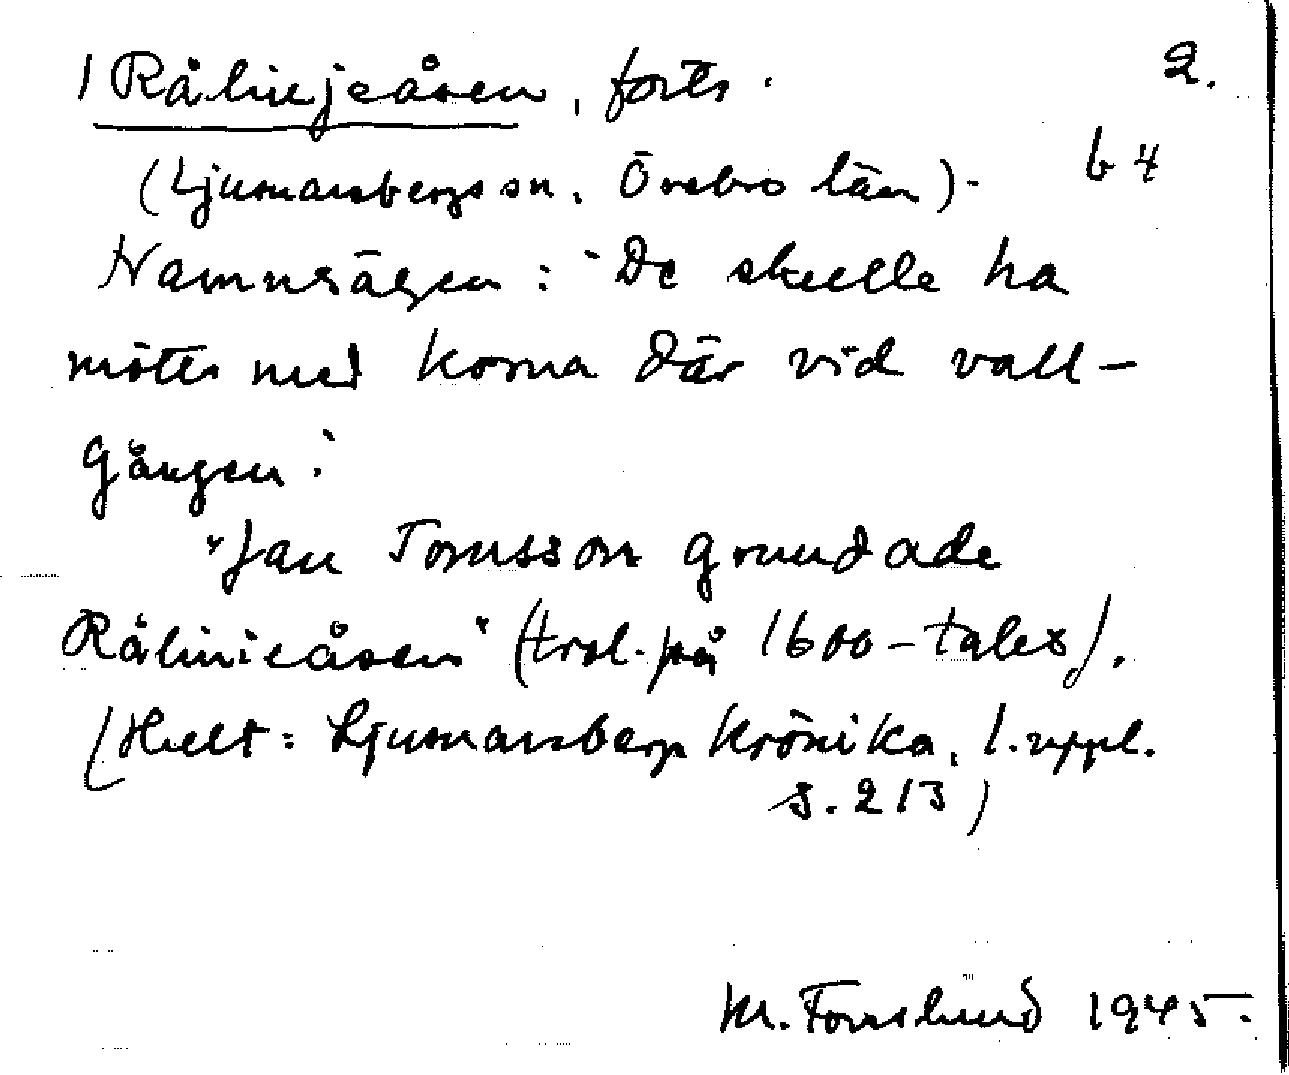 / Rålinjeåsen, forts. 2.
(Ljusnarsbergs sn, Örebro län). b 4
Namnsägen: "De skulle ha
mötts med korna där vid vall-
gången."
"Jan Tomsson grundade
Rålinieåsen" (trol. på 1600-talet).
(Hult: Ljusnarsbergs Krönika, 1. uppl.
s. 213)
M. Fornslund 1945.